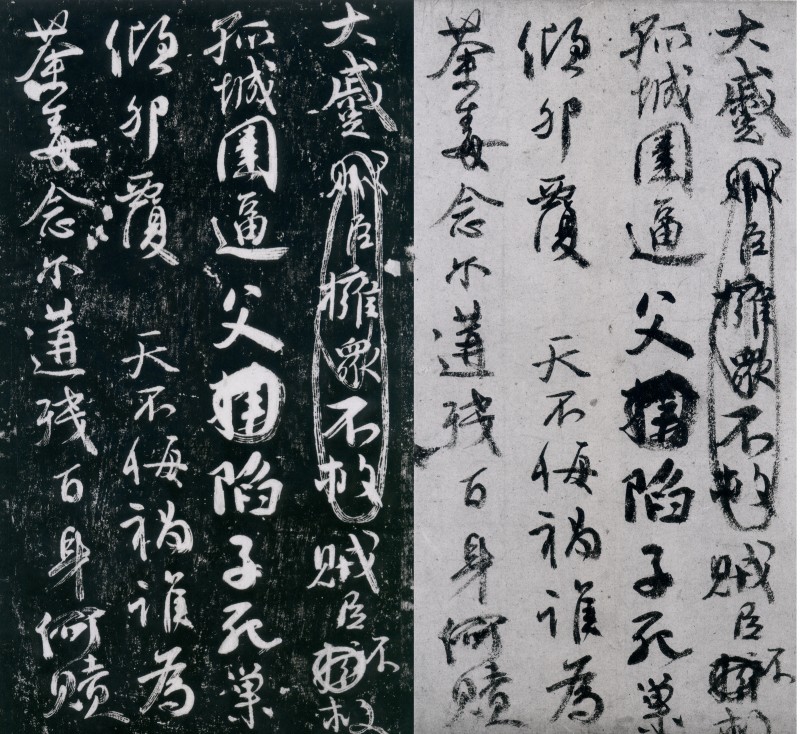 大蹙賊臣擁衆不救賊臣不救
孤城圍逼父陷子死巢
傾卵覆 天不悔禍誰為
荼毒念爾遘殘百身何贖
大蹙賊臣擁衆不救賊臣不救
孤城圍逼父陷子死巢
傾卵覆 天不悔禍誰為
荼毒念爾遘殘百身何贖